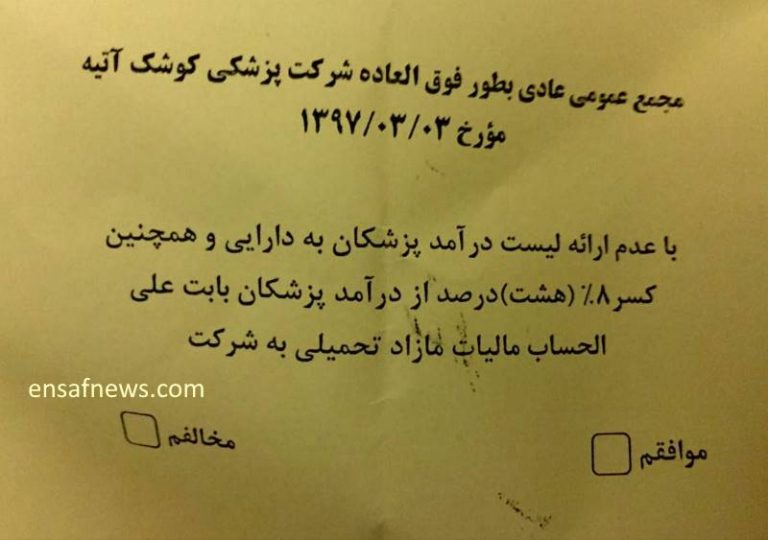 مجمع عمومی عادی بطور فوق العاده شرکت پزشکی کوشک آتیه
مؤرخ ۱۳۹۷/۰۳/۰۳
با عدم ارائه لیست درآمد پزشکان به دارایی و همچنین
کسر۸٪ (هشت)درصد از درآمد پزشکان بابت علی
الحساب مالیات مازاد تحمیلی به شرکت
ensafnews.com
موافقم
مخالفم